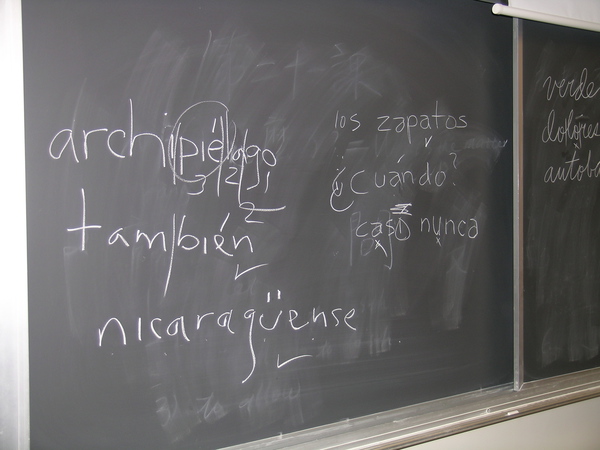 archipiélago
3 2 1
2
también
nicaragüense
los zapatos
¿Cuándo?
casi nunca
verde
dolóres
autoba